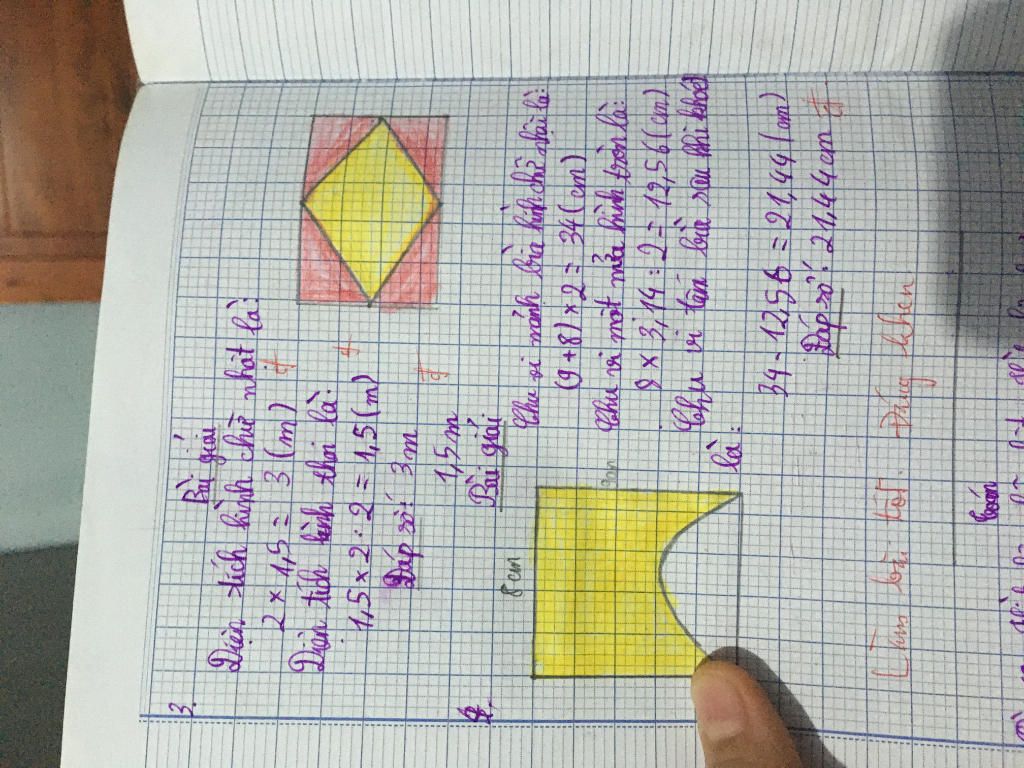 3.
Bài giải
Diện tích hình chữ nhật là:
2 x 1,5 = 3 (m)
Diện tích hình thoi là:
1,5 x 2 : 2 = 1,5 (m)
Đáp số: 3m
1,5m
4.
Bài giải
8cm
Chu vi mảnh bìa hình chữ nhật là:
(9+8) x 2 = 34 (cm)
Chu vi một nửa hình tròn là:
8 x 3,14 : 2 = 12,56 (cm)
Chu vi tấm bìa sau khi khoét
là:
34 - 12,56 = 21,44 (cm)
Đáp số: 21,44cm
Làm bài tốt. Đáng khen
Toán